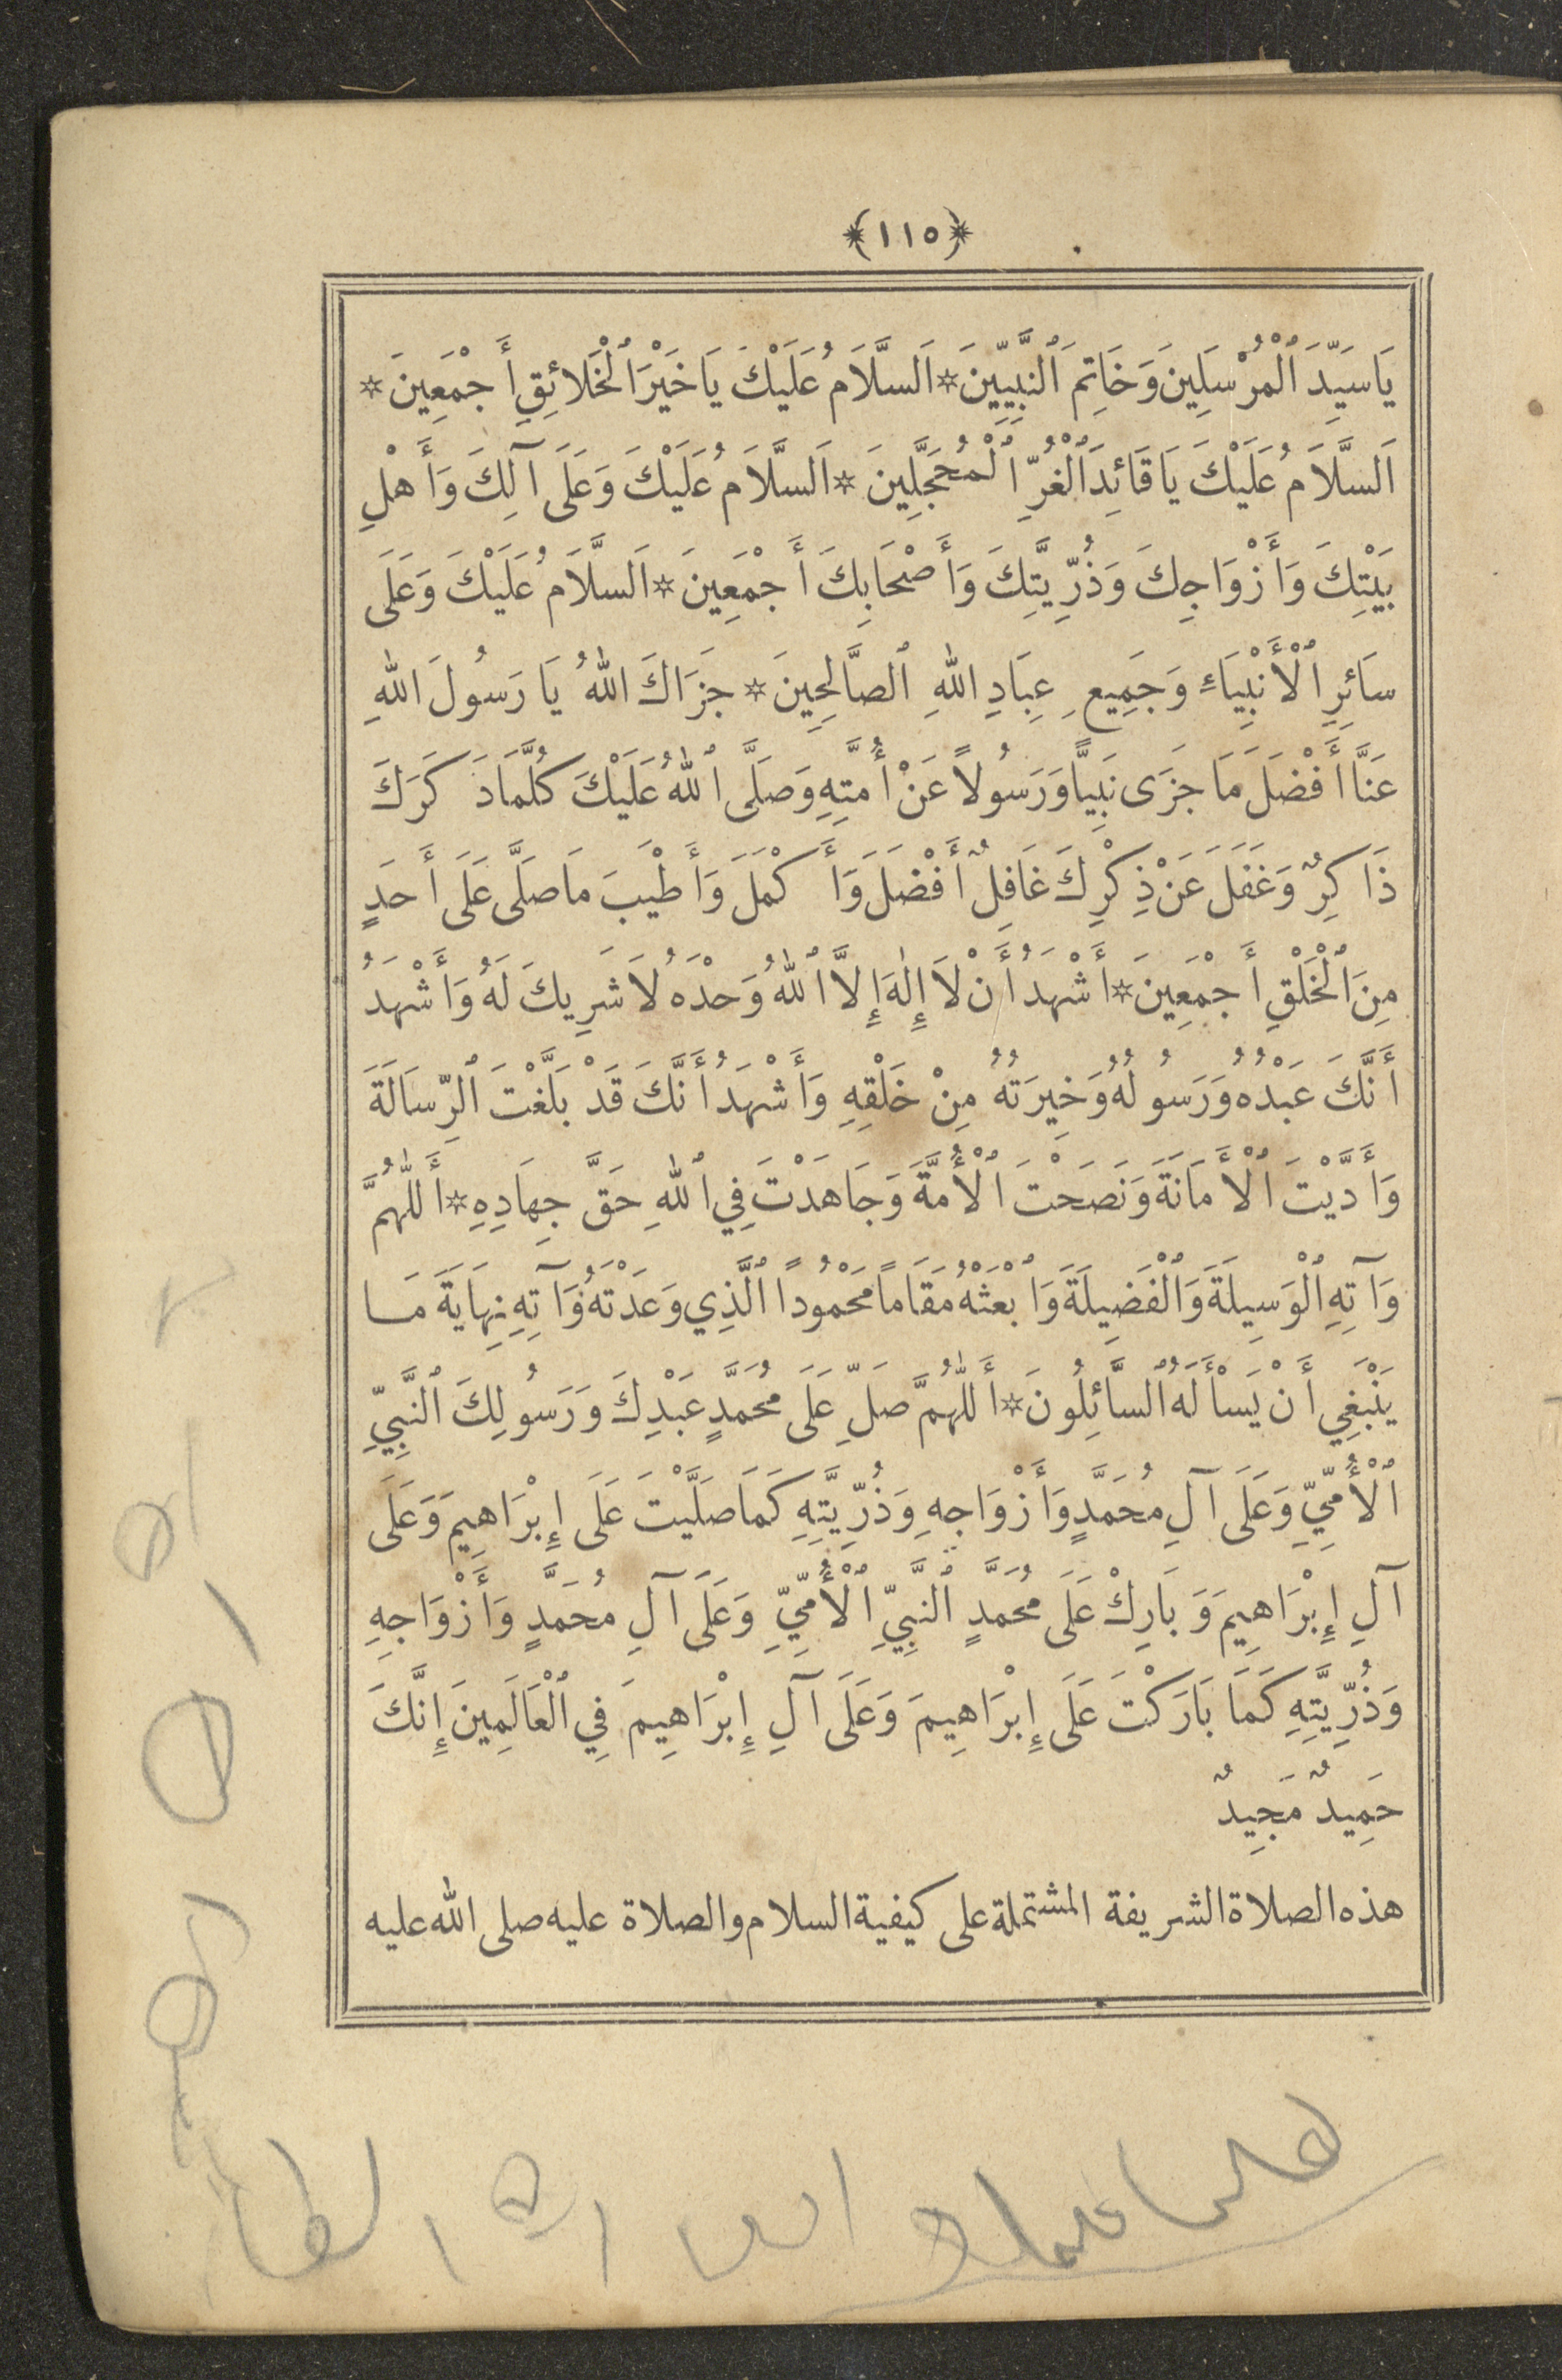 ﴿١١٥﴾
يَا سَيِّدَ ٱلْمُرْسَلِينَ وَخَاتِمَ ٱلنَّبِيِّينَ * اَلسَّلَامُ عَلَيْكَ يَا خَيْرَ ٱلْخَلَائِقِ أَجْمَعِينَ *
اَلسَّلَامُ عَلَيْكَ يَا قَائِدَ ٱلْغُرِّ ٱلْمُحَجَّلِينَ * اَلسَّلَامُ عَلَيْكَ وَعَلَى آلِكَ وَأَهْلِ
بَيْتِكَ وَأَزْوَاجِكَ وَذُرِّيَّتِكَ وَأَصْحَابِكَ أَجْمَعِينَ * اَلسَّلَامُ عَلَيْكَ وَعَلَى
سَائِرِ ٱلْأَنْبِيَاءِ وَجَمِيعِ عِبَادِ اللهِ ٱلصَّالِحِينَ * جَزَاكَ اللهُ يَا رَسُولَ اللهِ
عَنَّا أَفْضَلَ مَا جَزَى نَبِيًّا وَرَسُولاً عَنْ أُمَّتِهِ وَصَلَّى ٱللهُ عَلَيْكَ كُلَّمَا ذَكَرَكَ
ذَاكِرٌ وَغَفَلَ عَنْ ذِكْرِكَ غَافِلٌ أَفْضَلَ وَأَكْمَلَ وَأَطْيَبَ مَا صَلَّى عَلَى أَحَدٍ
مِنَ ٱلْخَلْقِ أَجْمَعِينَ * أَشْهَدُ أَنْ لَا إِلٰهَ إِلَّا ٱللهُ وَحْدَهُ لَا شَرِيكَ لَهُ وَأَشْهَدُ
أَنَّكَ عَبْدُهُ وَرَسُولُهُ وَخِيرَتُهُ مِنْ خَلْقِهِ وَأَشْهَدُ أَنَّكَ قَدْ بَلَّغْتَ ٱلرِّسَالَةَ
وَأَدَّيْتَ ٱلْأَمَانَةَ وَنَصَحْتَ ٱلْأُمَّةَ وَجَاهَدْتَ فِي ٱللهِ حَقَّ جِهَادِهِ * أَللّٰهُمَّ
وَآتِهِ ٱلْوَسِيلَةَ وَٱلْفَضِيلَةَ وَٱبْعَثْهُ مَقَامًا مَحْمُودًا ٱلَّذِي وَعَدْتَهُ وَآتِهِ نِهَايَةَ مَا
يَنْبَغِي أَنْ يَسْأَلَهُ ٱلسَّائِلُونَ * أَللّٰهُمَّ صَلِّ عَلَى مُحَمَّدٍ عَبْدِكَ وَرَسُولِكَ ٱلنَّبِيِّ
ٱلْأُمِّيِّ وَعَلَى آلِ مُحَمَّدٍ وَأَزْوَاجِهِ وَذُرِّيَّتِهِ كَمَا صَلَّيْتَ عَلَى إِبْرَاهِيمَ وَعَلَى
آلِ إِبْرَاهِيمَ وَبَارِكْ عَلَى مُحَمَّدٍ ٱلنَّبِيِّ ٱلْأُمِّيِّ وَعَلَى آلِ مُحَمَّدٍ وَأَزْوَاجِهِ
وَذُرِّيَّتِهِ كَمَا بَارَكْتَ عَلَى إِبْرَاهِيمَ وَعَلَى آلِ إِبْرَاهِيمَ فِي ٱلْعَالَمِينَ إِنَّكَ
حَمِيدٌ مَجِيدٌ
هذه الصلاة الشريفة المشتملة على كيفية السلام والصلاة عليه صلى الله عليه